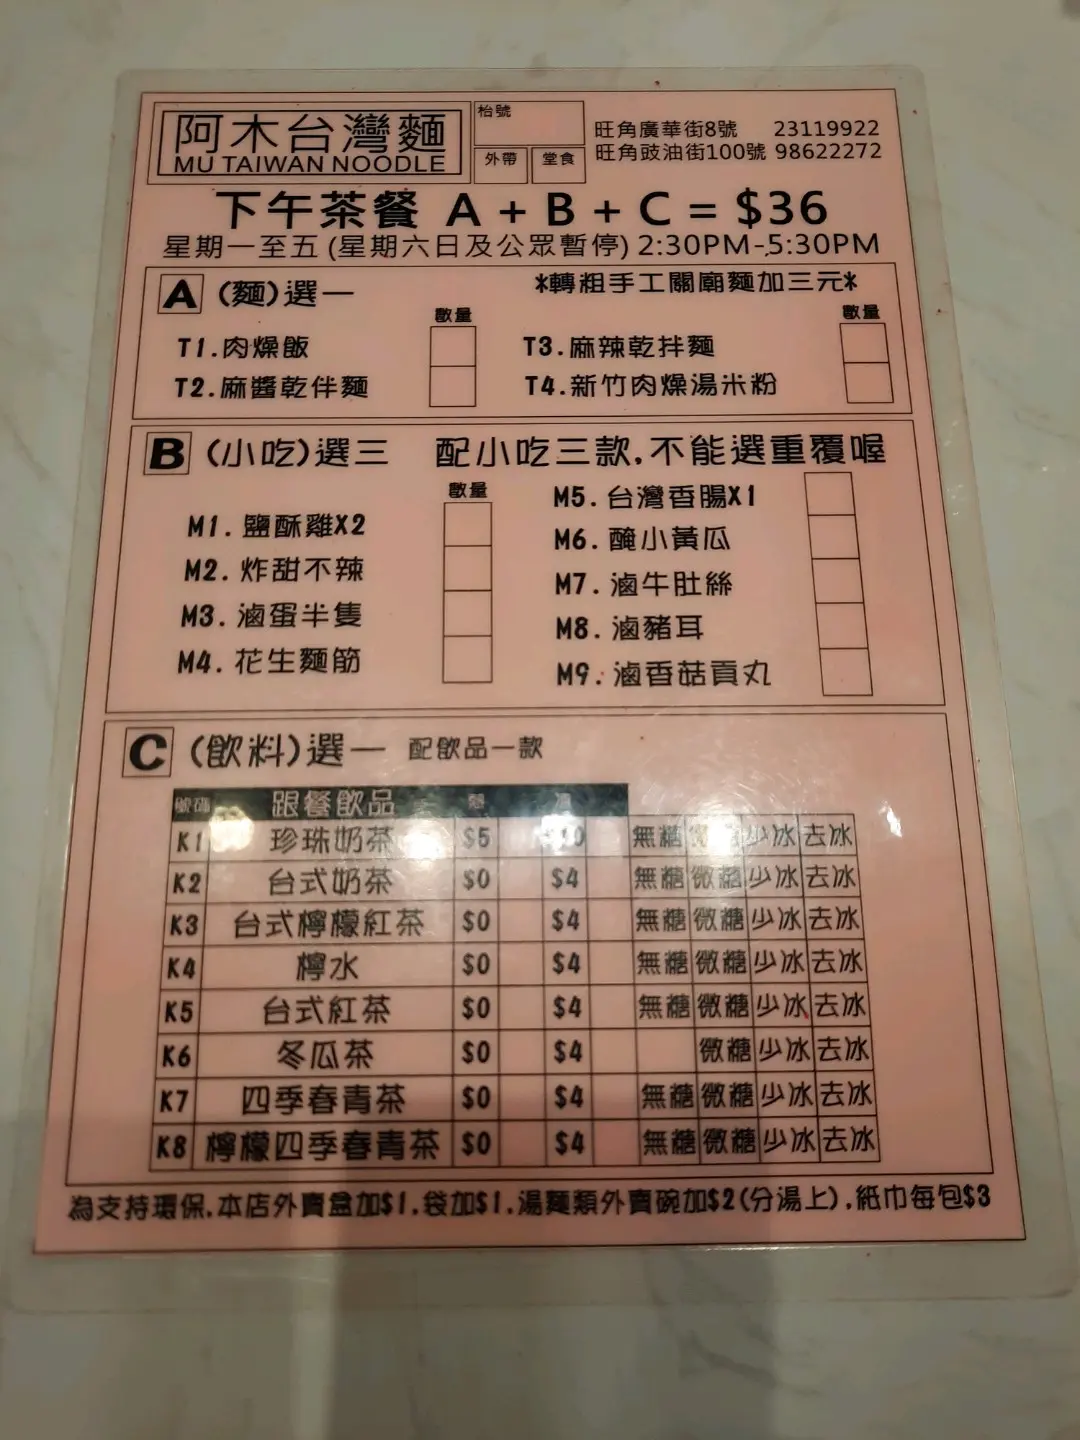 阿木台灣麵
MU TAIWAN NOODLE
枱號
外帶 堂食
旺角廣華街8號 23119922
旺角豉油街100號 98622272
下午茶餐 A + B + C = $36
星期一至五 (星期六日及公眾暫停) 2:30PM-5:30PM
A (麵)選一 *轉粗手工關廟麵加三元*
數量 數量
T1.肉燥飯 T3.麻辣乾拌麵
T2.麻醬乾伴麵 T4.新竹肉燥湯米粉
B (小吃)選三 配小吃三款,不能選重覆喔
數量
M1. 鹽酥雞X2
M2. 炸甜不辣
M3. 滷蛋半隻
M4. 花生麵筋
M5. 台灣香腸X1
M6. 醃小黃瓜
M7. 滷牛肚絲
M8. 滷豬耳
M9. 滷香菇貢丸
C (飲料)選一 配飲品一款
號碼 跟餐飲品
K1 珍珠奶茶 $5 無糖 少冰 去冰
K2 台式奶茶 $0 $4 無糖 微糖 少冰 去冰
K3 台式檸檬紅茶 $0 $4 無糖 微糖 少冰 去冰
K4 檸水 $0 $4 無糖 微糖 少冰 去冰
K5 台式紅茶 $0 $4 無糖 微糖 少冰 去冰
K6 冬瓜茶 $0 $4 微糖 少冰 去冰
K7 四季春青茶 $0 $4 無糖 微糖 少冰 去冰
K8 檸檬四季春青茶 $0 $4 無糖 微糖 少冰 去冰
為支持環保,本店外賣盒加$1,袋加$1,湯麵類外賣碗加$2(分湯上),紙巾每包$3